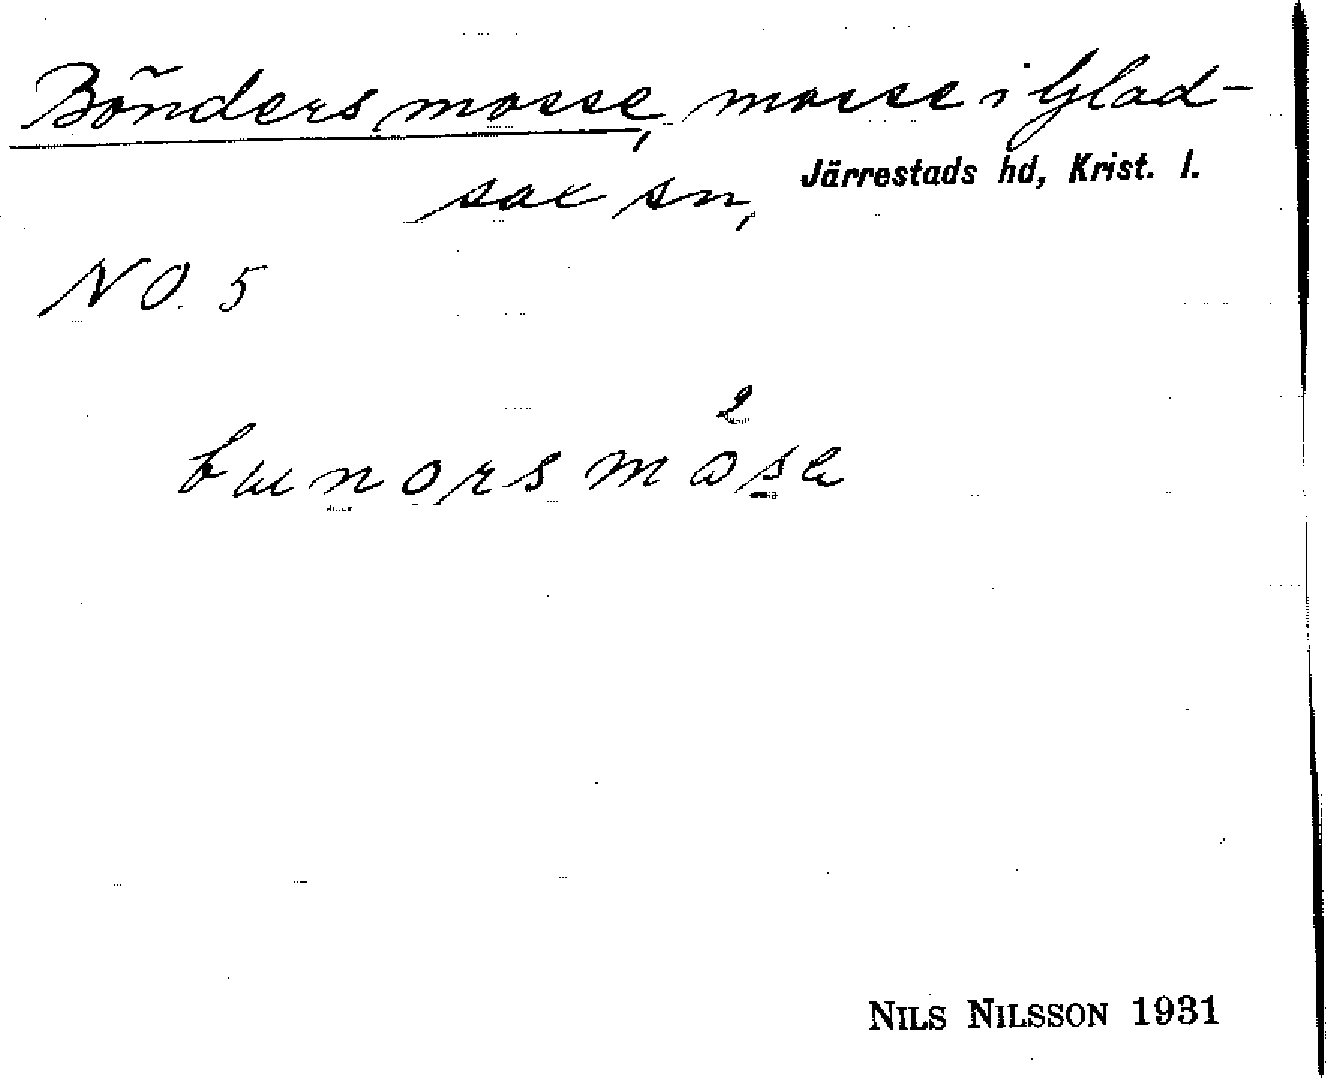 Bönders mosse, mosse i Glad-
sax sn, Järrestads hd, Krist. l.
NO. 5
2
NILS NILSSON 1931